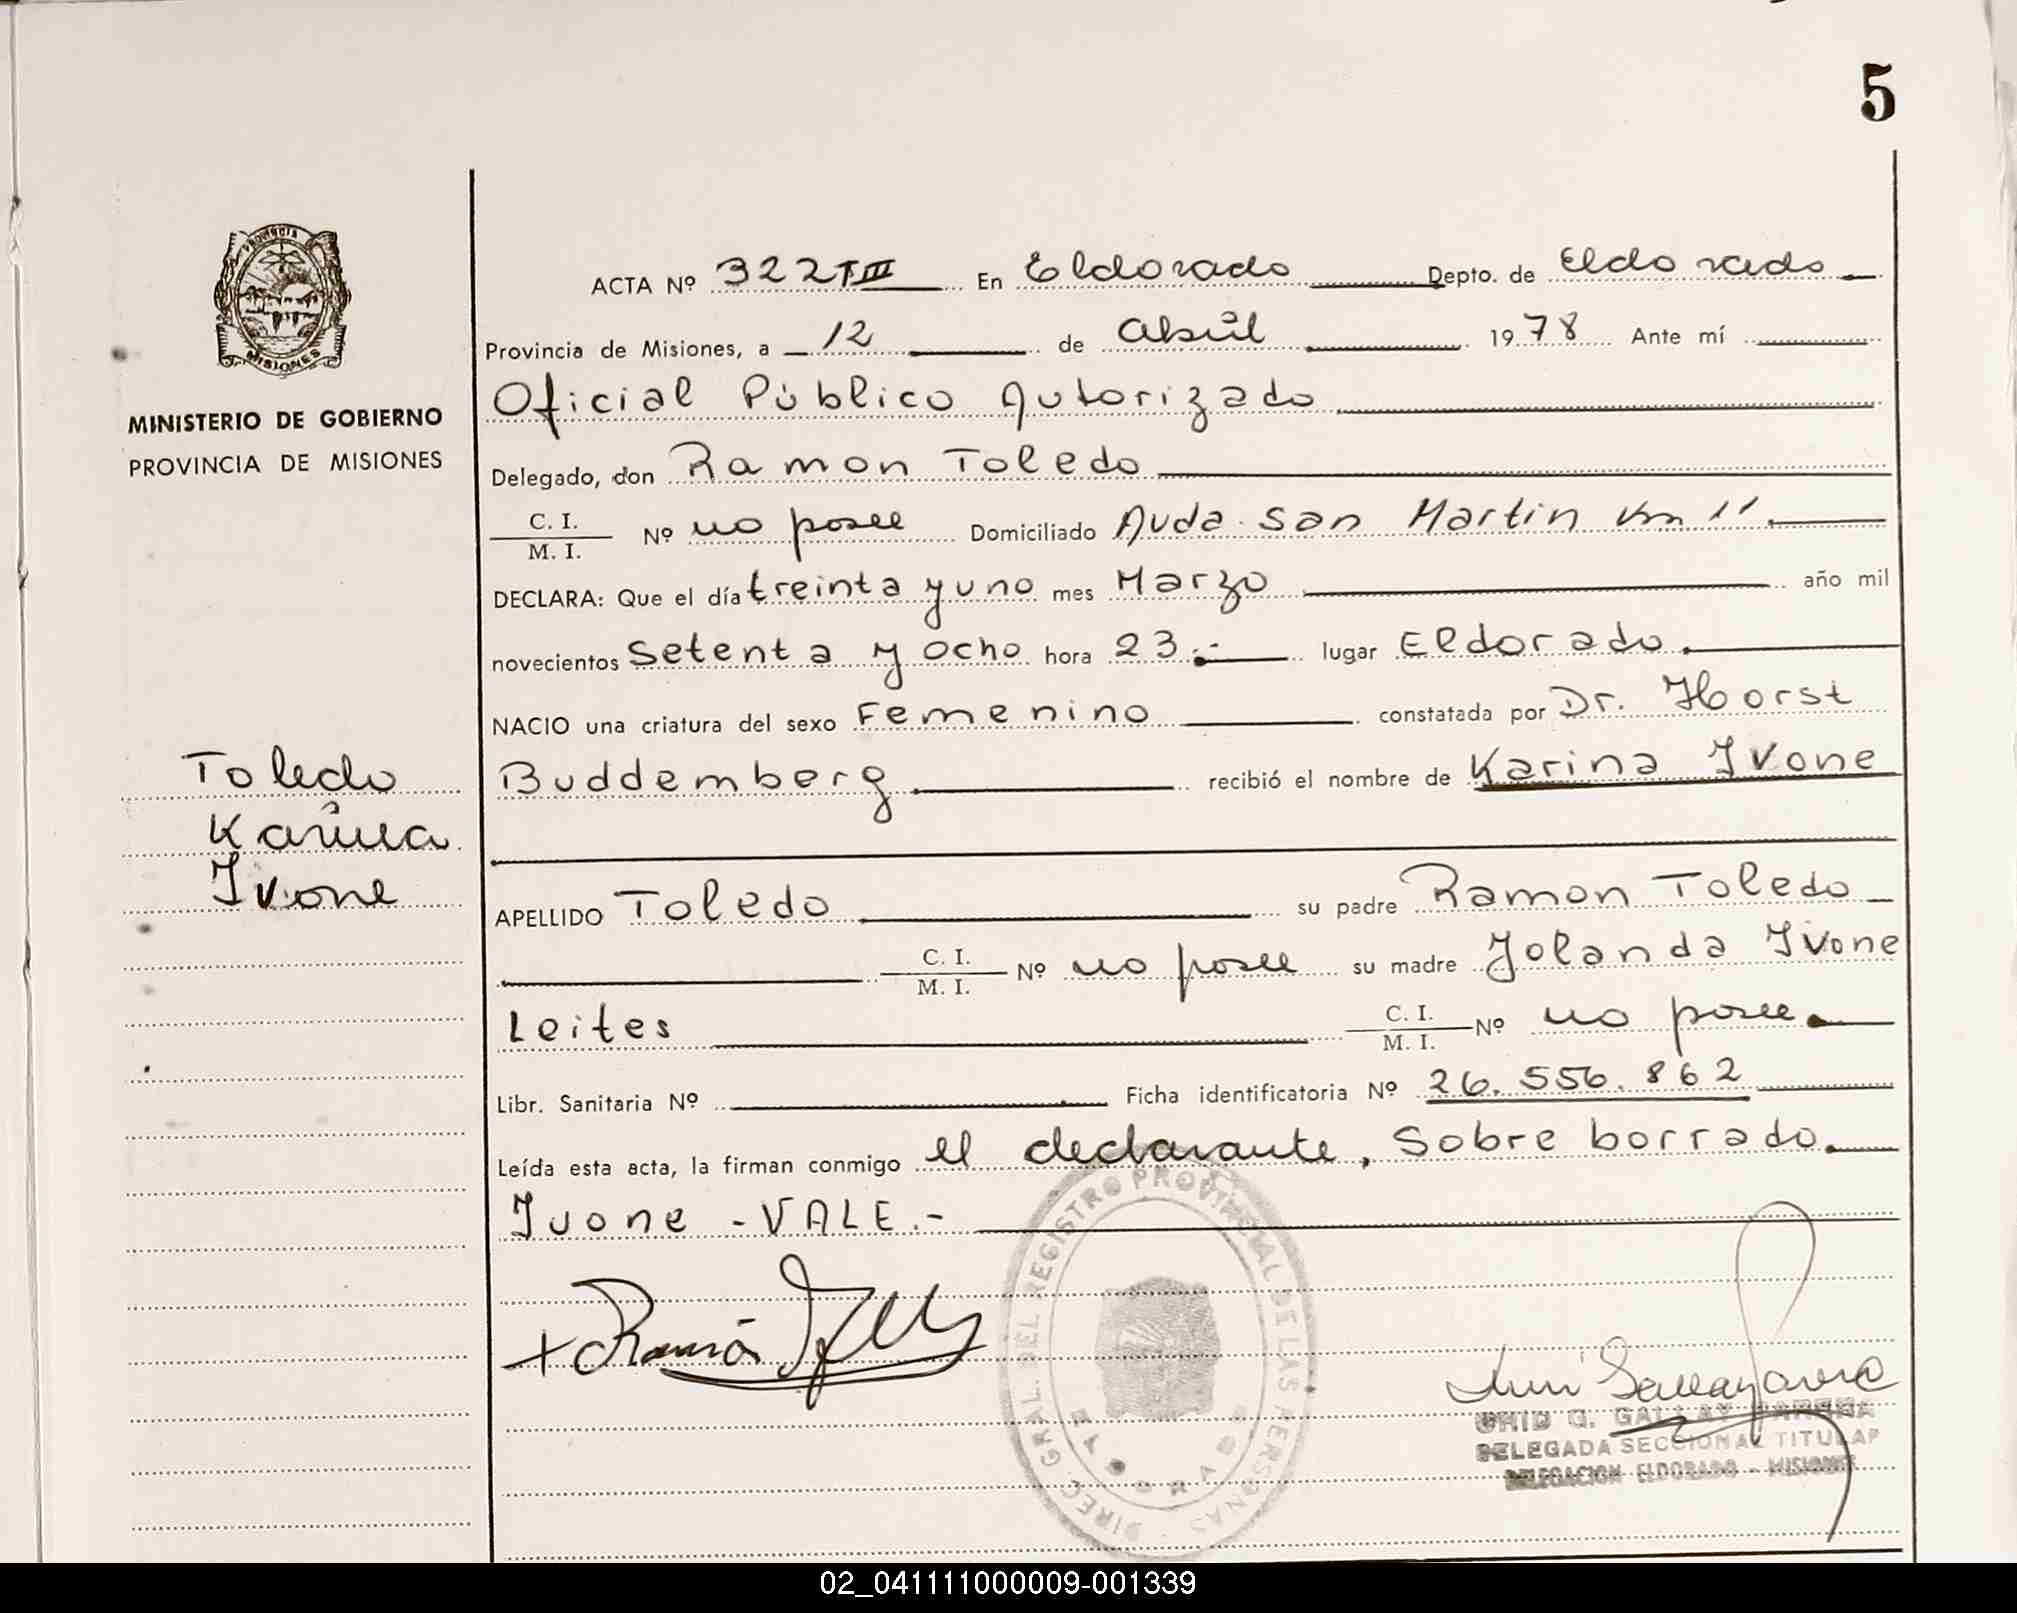 5
PROVINCIA
MISIONES
MINISTERIO DE GOBIERNO
PROVINCIA DE MISIONES
Toledo
Karina
Ivone
ACTA Nº 322 T III En Eldorado Depto. de Eldorado
Provincia de Misiones, a 12 de abril 1978 Ante mí
Oficial Público Autorizado
Delegado, don Ramon Toledo
C. I.
M. I. Nº no posee Domiciliado Avda. San Martin Km 11
DECLARA: Que el día treinta y uno mes Marzo año mil
novecientos Setenta y ocho hora 23.- lugar Eldorado.
NACIO una criatura del sexo Femenino constatada por Dr. Horst
Buddemberg recibió el nombre de Karina Ivone
APELLIDO Toledo su padre Ramon Toledo
C. I.
M. I. Nº no posee su madre Jolanda Ivone
Leites C. I.
M. I. Nº no posee.
Libr. Sanitaria Nº Ficha identificatoria Nº 26.556.862
Leída esta acta, la firman conmigo el declarante, Sobre borrado.
Ivone - VALE.-
DIREC. GRAL. DEL REGISTRO PROVINCIAL DE LAS PERSONAS
+ Ramón
G. GALLAY
DELEGADA SECCIONAL TITULAR
DELEGACION ELDORADO - MISIONES
02_041111000009-001339